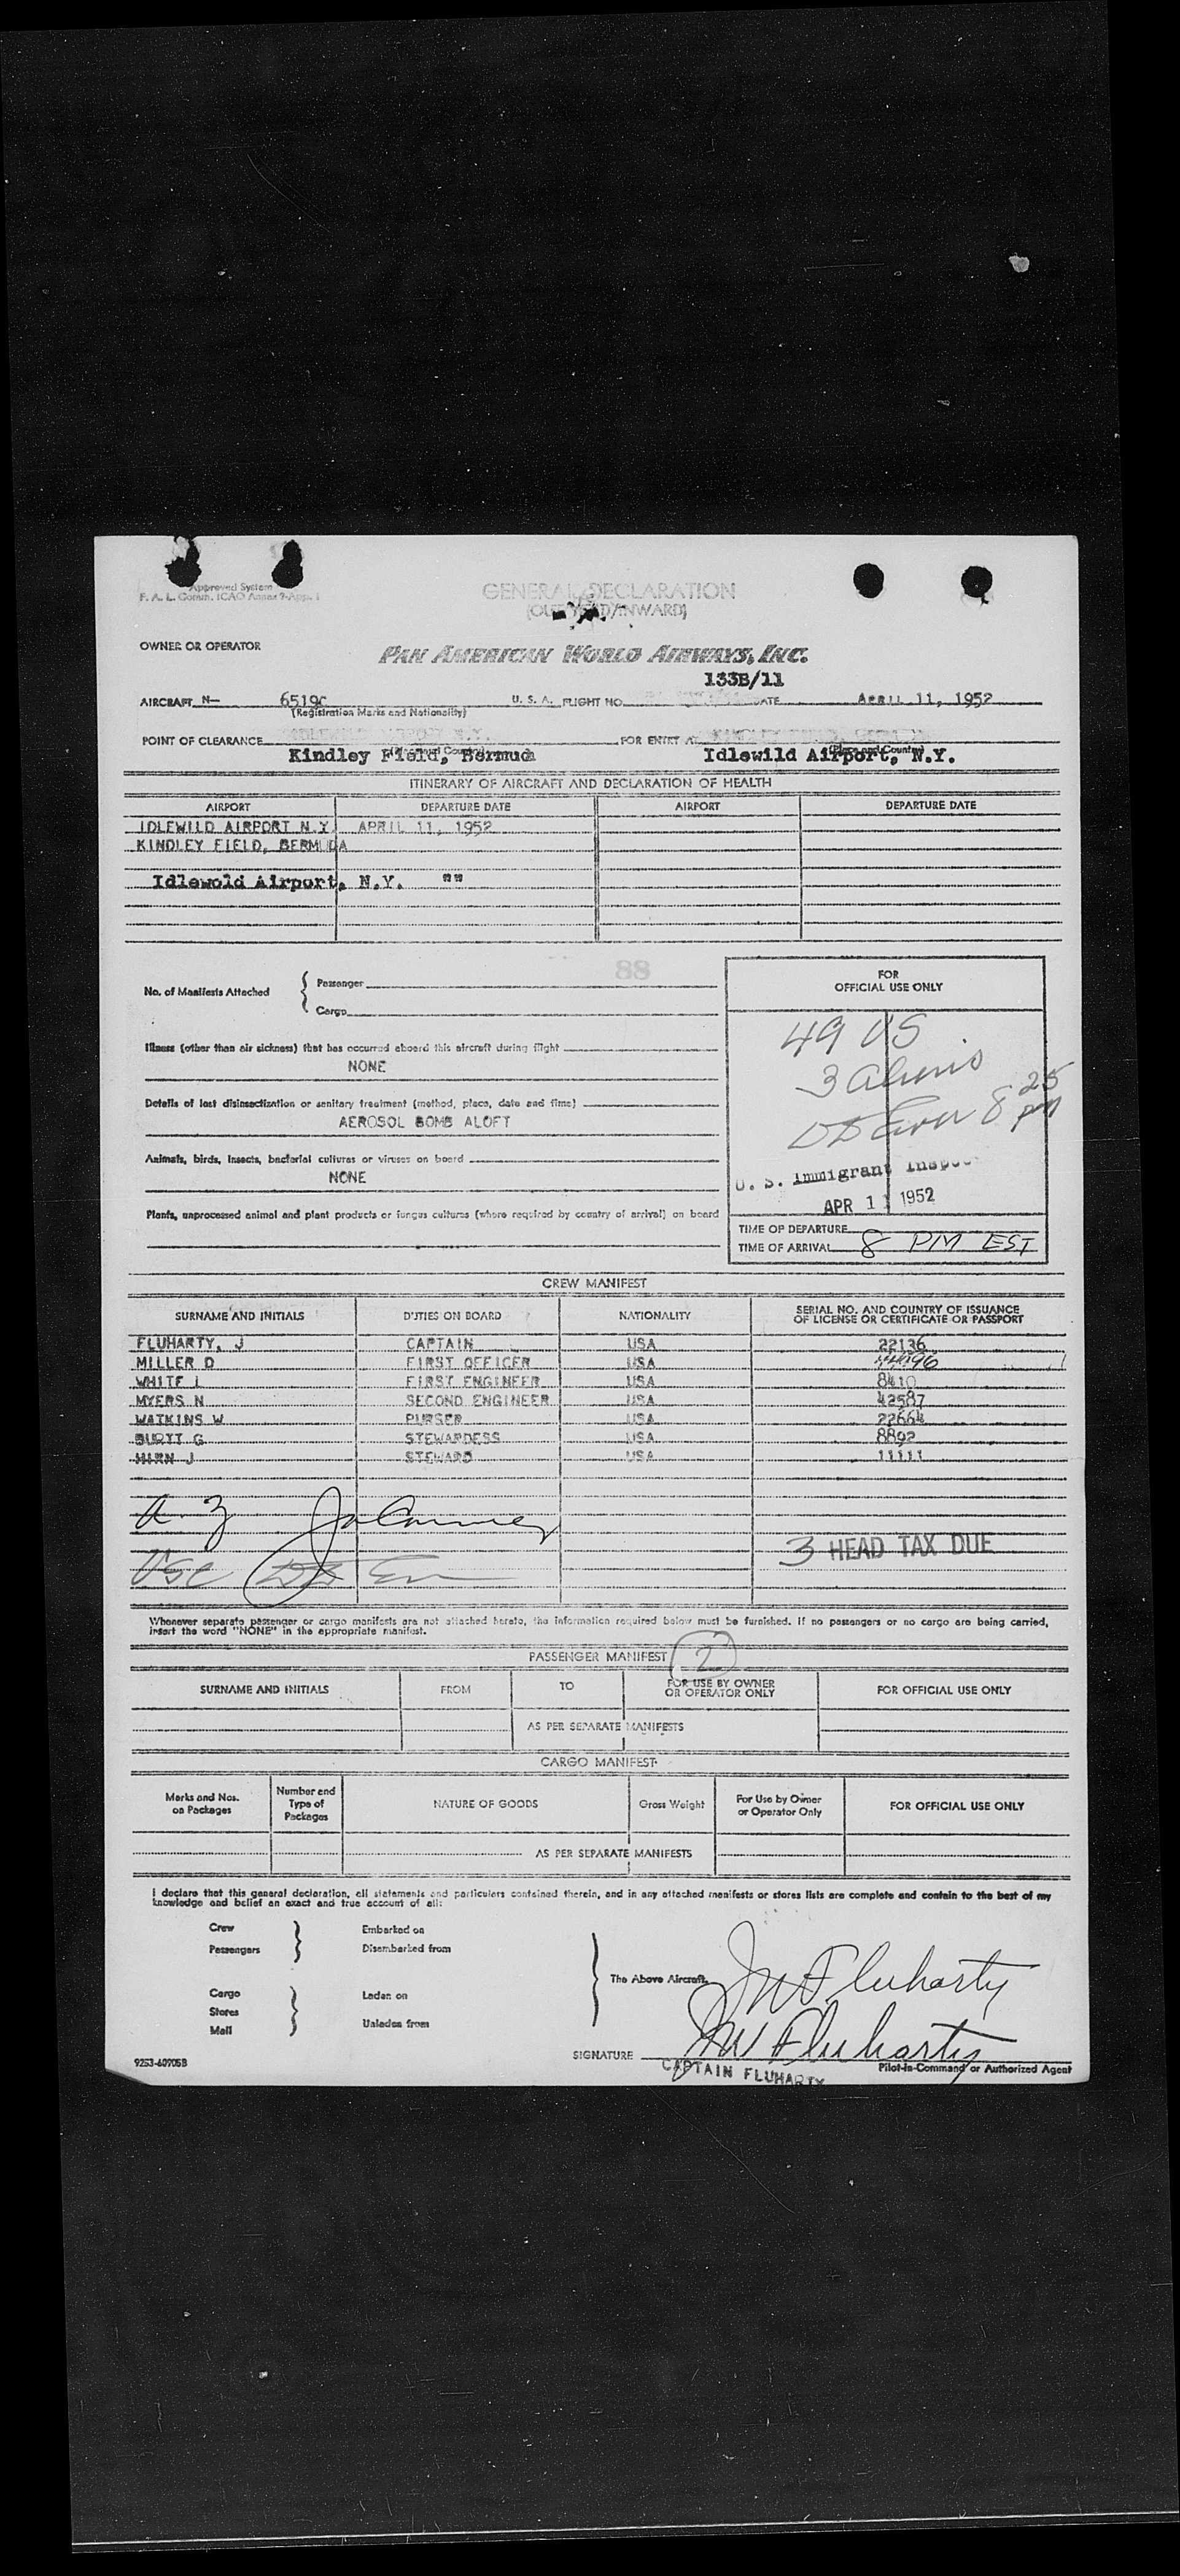 Approved System
F. A. L. Comm. ICAO Annex 9-App. 1
GENERAL DECLARATION
(OUTWARD/INWARD)
OWNER OR OPERATOR
PAN AMERICAN WORLD AIRWAYS, INC.
133B/11
AIRCRAFT N- 6519C U. S. A. FLIGHT NO. DATE APRIL 11, 1952
(Registration Marks and Nationality)
POINT OF CLEARANCE FOR ENTRY AT
Kindley Field, Bermuda Idlewild Airport, N.Y.
(Place and Country) (Place and Country)
ITINERARY OF AIRCRAFT AND DECLARATION OF HEALTH
AIRPORT DEPARTURE DATE AIRPORT DEPARTURE DATE
IDLEWILD AIRPORT N.Y. APRIL 11, 1952
KINDLEY FIELD, BERMUDA
Idlewold Airport, N.Y. ""
88
No. of Manifests Attached { Passenger
Cargo
Illness (other than air sickness) that has occurred aboard this aircraft during flight
NONE
Details of last disinsectization or sanitary treatment (method, place, date and time)
AEROSOL BOMB ALOFT
Animals, birds, insects, bacterial cultures or viruses on board
NONE
Plants, unprocessed animal and plant products or fungus cultures (where required by country of arrival) on board
FOR
OFFICIAL USE ONLY
49 US
3 aliens
8 25 pm
U. S. Immigrant
APR 11 1952
TIME OF DEPARTURE
TIME OF ARRIVAL 8 PM EST
CREW MANIFEST
SURNAME AND INITIALS DUTIES ON BOARD NATIONALITY SERIAL NO. AND COUNTRY OF ISSUANCE
OF LICENSE OR CERTIFICATE OR PASSPORT
FLUHARTY, J CAPTAIN USA 22136
MILLER D FIRST OFFICER USA
WHITE L FIRST ENGINEER USA 8410
MYERS N SECOND ENGINEER USA 42587
WATKINS W PURSER USA 22664
BURTT G STEWARDESS USA 8892
HIRN J STEWARD USA 11111
3 HEAD TAX DUE
USC
Whenever separate passenger or cargo manifests are not attached hereto, the information required below must be furnished. If no passengers or no cargo are being carried,
insert the word "NONE" in the appropriate manifest.
PASSENGER MANIFEST 2
SURNAME AND INITIALS FROM TO FOR USE BY OWNER
OR OPERATOR ONLY FOR OFFICIAL USE ONLY
AS PER SEPARATE MANIFESTS
CARGO MANIFEST
Marks and Nos.
on Packages Number and
Type of
Packages NATURE OF GOODS Gross Weight For Use by Owner
or Operator Only FOR OFFICIAL USE ONLY
AS PER SEPARATE MANIFESTS
I declare that this general declaration, all statements and particulars contained therein, and in any attached manifests or stores lists are complete and contain to the best of my
knowledge and belief an exact and true account of all:
Crew Embarked on
Passengers Disembarked from
The Above Aircraft.
Cargo Laden on
Stores
Mail Unladen from
JW Fluharty
JW Fluharty
SIGNATURE
CAPTAIN FLUHARTY
Pilot-in-Command or Authorized Agent
9253-60905B